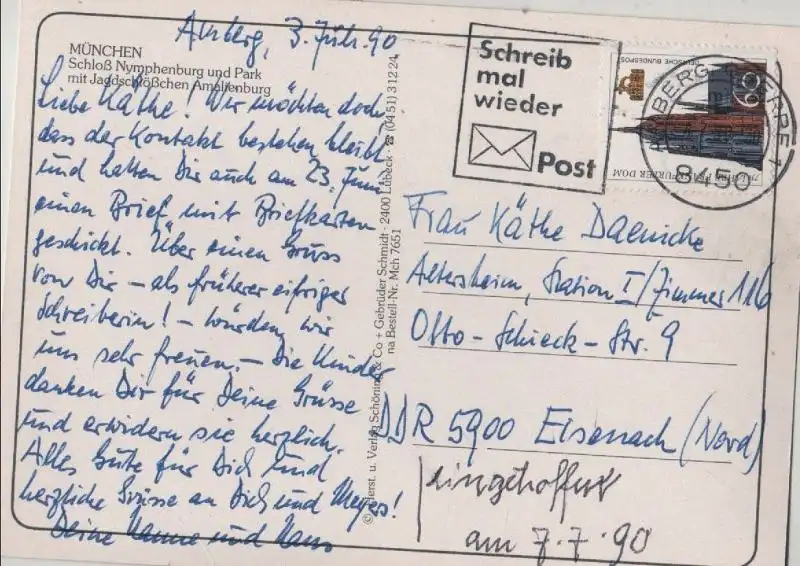 Amberg, 3. Juli 90
MÜNCHEN
Schloß Nymphenburg und Park
mit Jagdschlößchen Amalienburg
Liebe Käthe! Wir möchten doch,
dass der Kontakt bestehen bleibt
und hatten Dir auch am 23. Juni
einen Brief mit Briefkarten
geschickt. Über einen Gruss
von Dir – als früherer eifriger
Schreiberin! – würden wir
uns sehr freuen. – Die Kinder
danken Dir für Deine Grüsse
und erwidern sie herzlich.
Alles Gute für Dich und
herzliche Grüsse an Dich und Meyers!
Deine Hanne und Hans
Schöning & Co + Gebrüder Schmidt · 2400 Lübeck · ☎ (04 51) 3 12 24
Bestell-Nr. Mch 7651
Schreib
mal
wieder
Post
DEUTSCHE BUNDESPOST
60
FRANKFURTER DOM
AMBERG, OBERPF 1
8450
Frau Käthe Daenicke
Altersheim, Station I/Zimmer 116
Otto-Schieck-Str. 9
DDR 5900 Eisenach (Nord)
eingetroffen
am 7.7.90